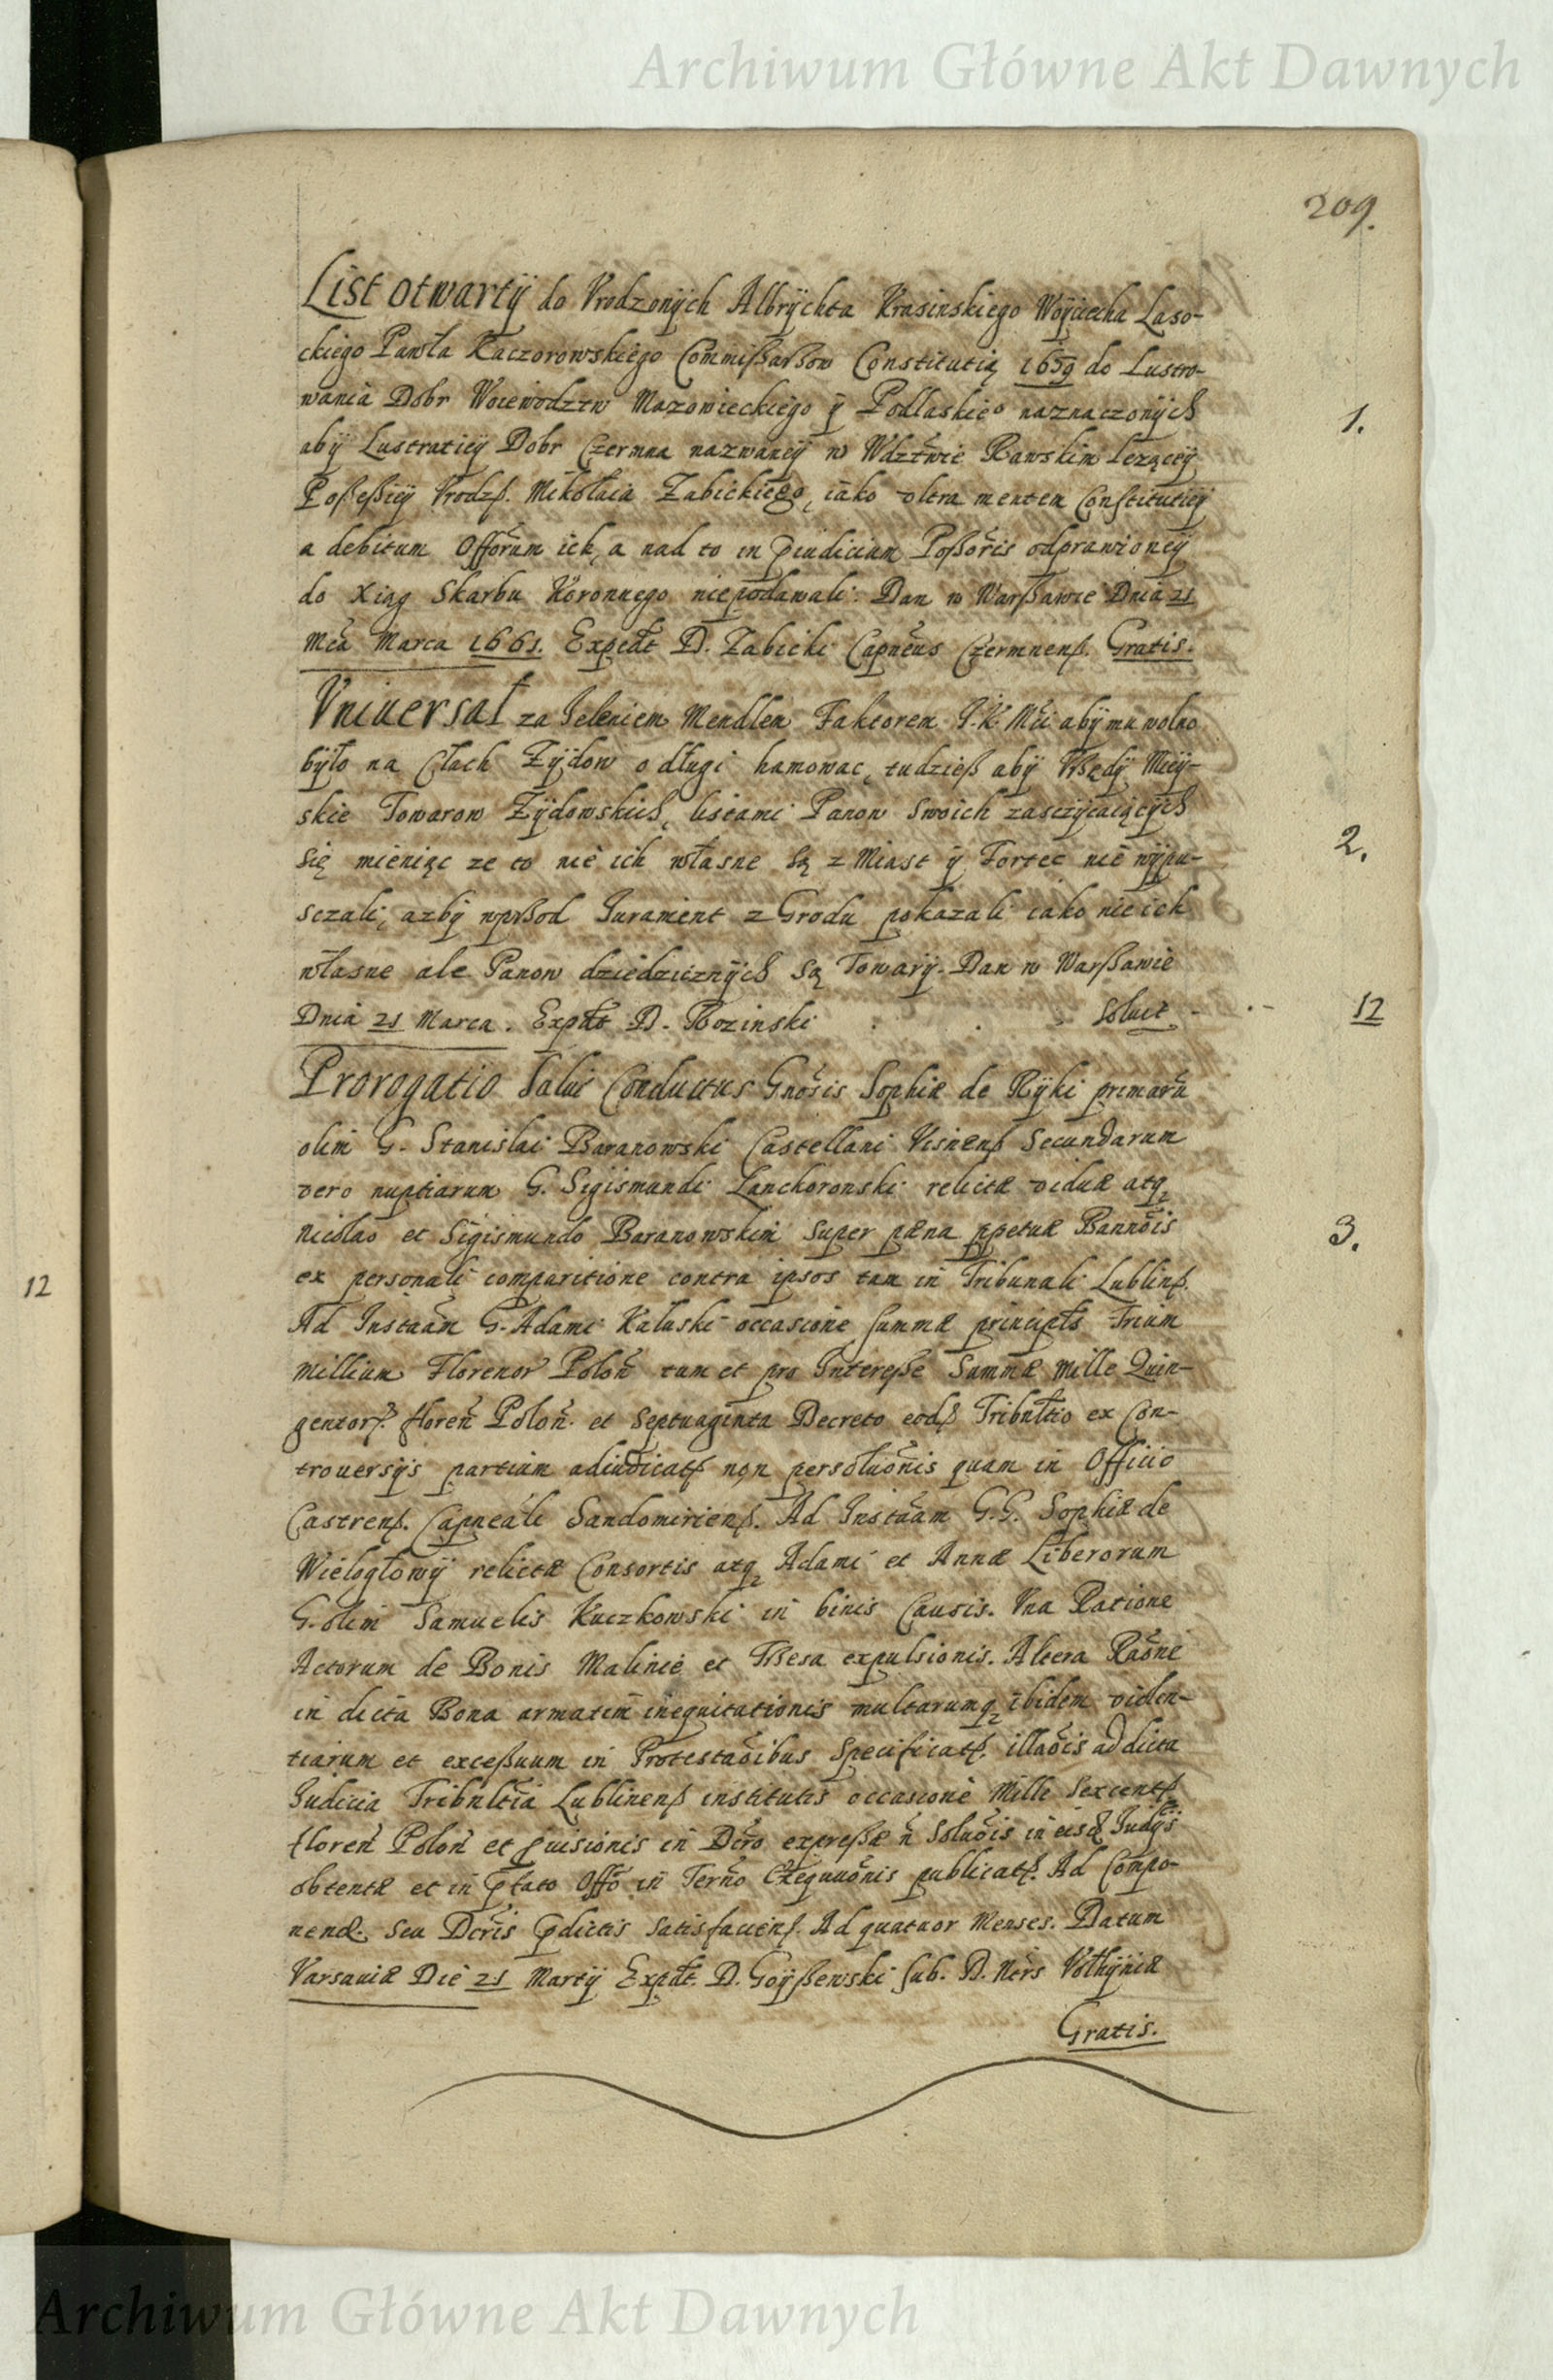 Archiwum Główne Akt Dawnych
209.
List otwartÿ do Vrodzonÿch Albrÿchta Krasinskiego Woÿciecha Laso-
ckiego Pawła Kaczorowskiego Commißarßow Constitutią 1659 do Lustro-
wania Dobr Woiewodztw Mazowieckiego ÿ Podlaskieº naznaczonÿch
1.
abÿ Lustratieÿ Dobr Czermna nazwaneÿ w Wdztwie Rawskim leząceÿ
Poßeßieÿ Vrodz. Mikołaia Zabickiego, iako vltra mentem Constitutieÿ
a debitum Offorum ich, a nad to in piudicium Poßoris odprawioneÿ
do Xiąg Skarbu Koronnego niepodawali. Dan w Warßawie Dnia 21
Mca Marca 1661. Expedt D. Zabicki Capneus Czermnens. Gratis.
Vniuersał za Ieleniem Mendlem Faktorem J.K.Mci abÿ mu wolno
bÿło na Cłach Zÿdow o długi hamowac, tudzieß abÿ Vrzędÿ Mieÿ-
skie Towarow Zÿdowskich, listami Panow swoich zasczÿcaiącÿch
2.
się mieniąc ze to nie ich własne są z Miast ÿ Fortec nie wÿpu-
sczali, azbÿ wprßod Jurament z Grodu pokazali iako nie ich
własne ale Panow dziedzicznÿch są Towarÿ. Dan w Warßawie
Dnia 21 Marca. Expdt D. Rozinski . . . Soluit - . - 12
Prorogatio Salui Conductus Gnosis Sophiæ de Rÿki primaru
olim G. Stanislai Baranowski Castellani Visnens Secundarum
vero nuptiarum G. Sigismundi Lanckoronski relictæ viduæ atq
Nicolao et Sigismundo Baranowskim super pæna ppetuæ Bannois
3.
ex personali comparitione contra ipsos tam in Tribunali Lublins.
12
Ad Instaam G. Adami Kałuski occasione summæ principls Trium
millium Florenor Polon tum et pro Intereße Summæ mille Quin-
gentor. floren Polon. et Septuaginta Decreto eods Tribnltio ex Con-
trouersÿs partium adiudicat non persoluonis quam in Officio
Castrens. Capneali Sandomiriens. Ad Instaam G.G. Sophiæ de
Wielogłowÿ relictæ Consortis atq Adami et Annæ Liberorum
G. olim Samuelis Kuczkowski in binis Causis. Vna Ratione
Actorum de Bonis Malinie et Trzesa expulsionis. Altera Raone
in dicta Bona armatim inequitationis multarumq ibidem violen-
tiarum et exceßuum in Protestaoibus Specificat. illaois ad dicta
Iudicia Tribnltia Lublinens institutis occasione Mille Sexcent
floren Polon et puisionis in Dcro expreßæ n Soluois in eisd Iudÿs
obtentæ et in ptato Offo in Terno Exequuonis publicat. Ad Compo-
nend. seu Dcris pdictis Satisfaciens. Ad quatuor Menses. Datum
Varsauiæ Die 21 Martÿ Expdt. D. Goÿßewski sub. D. Ners Vołhÿniæ
Gratis.
Archiwum Główne Akt Dawnych